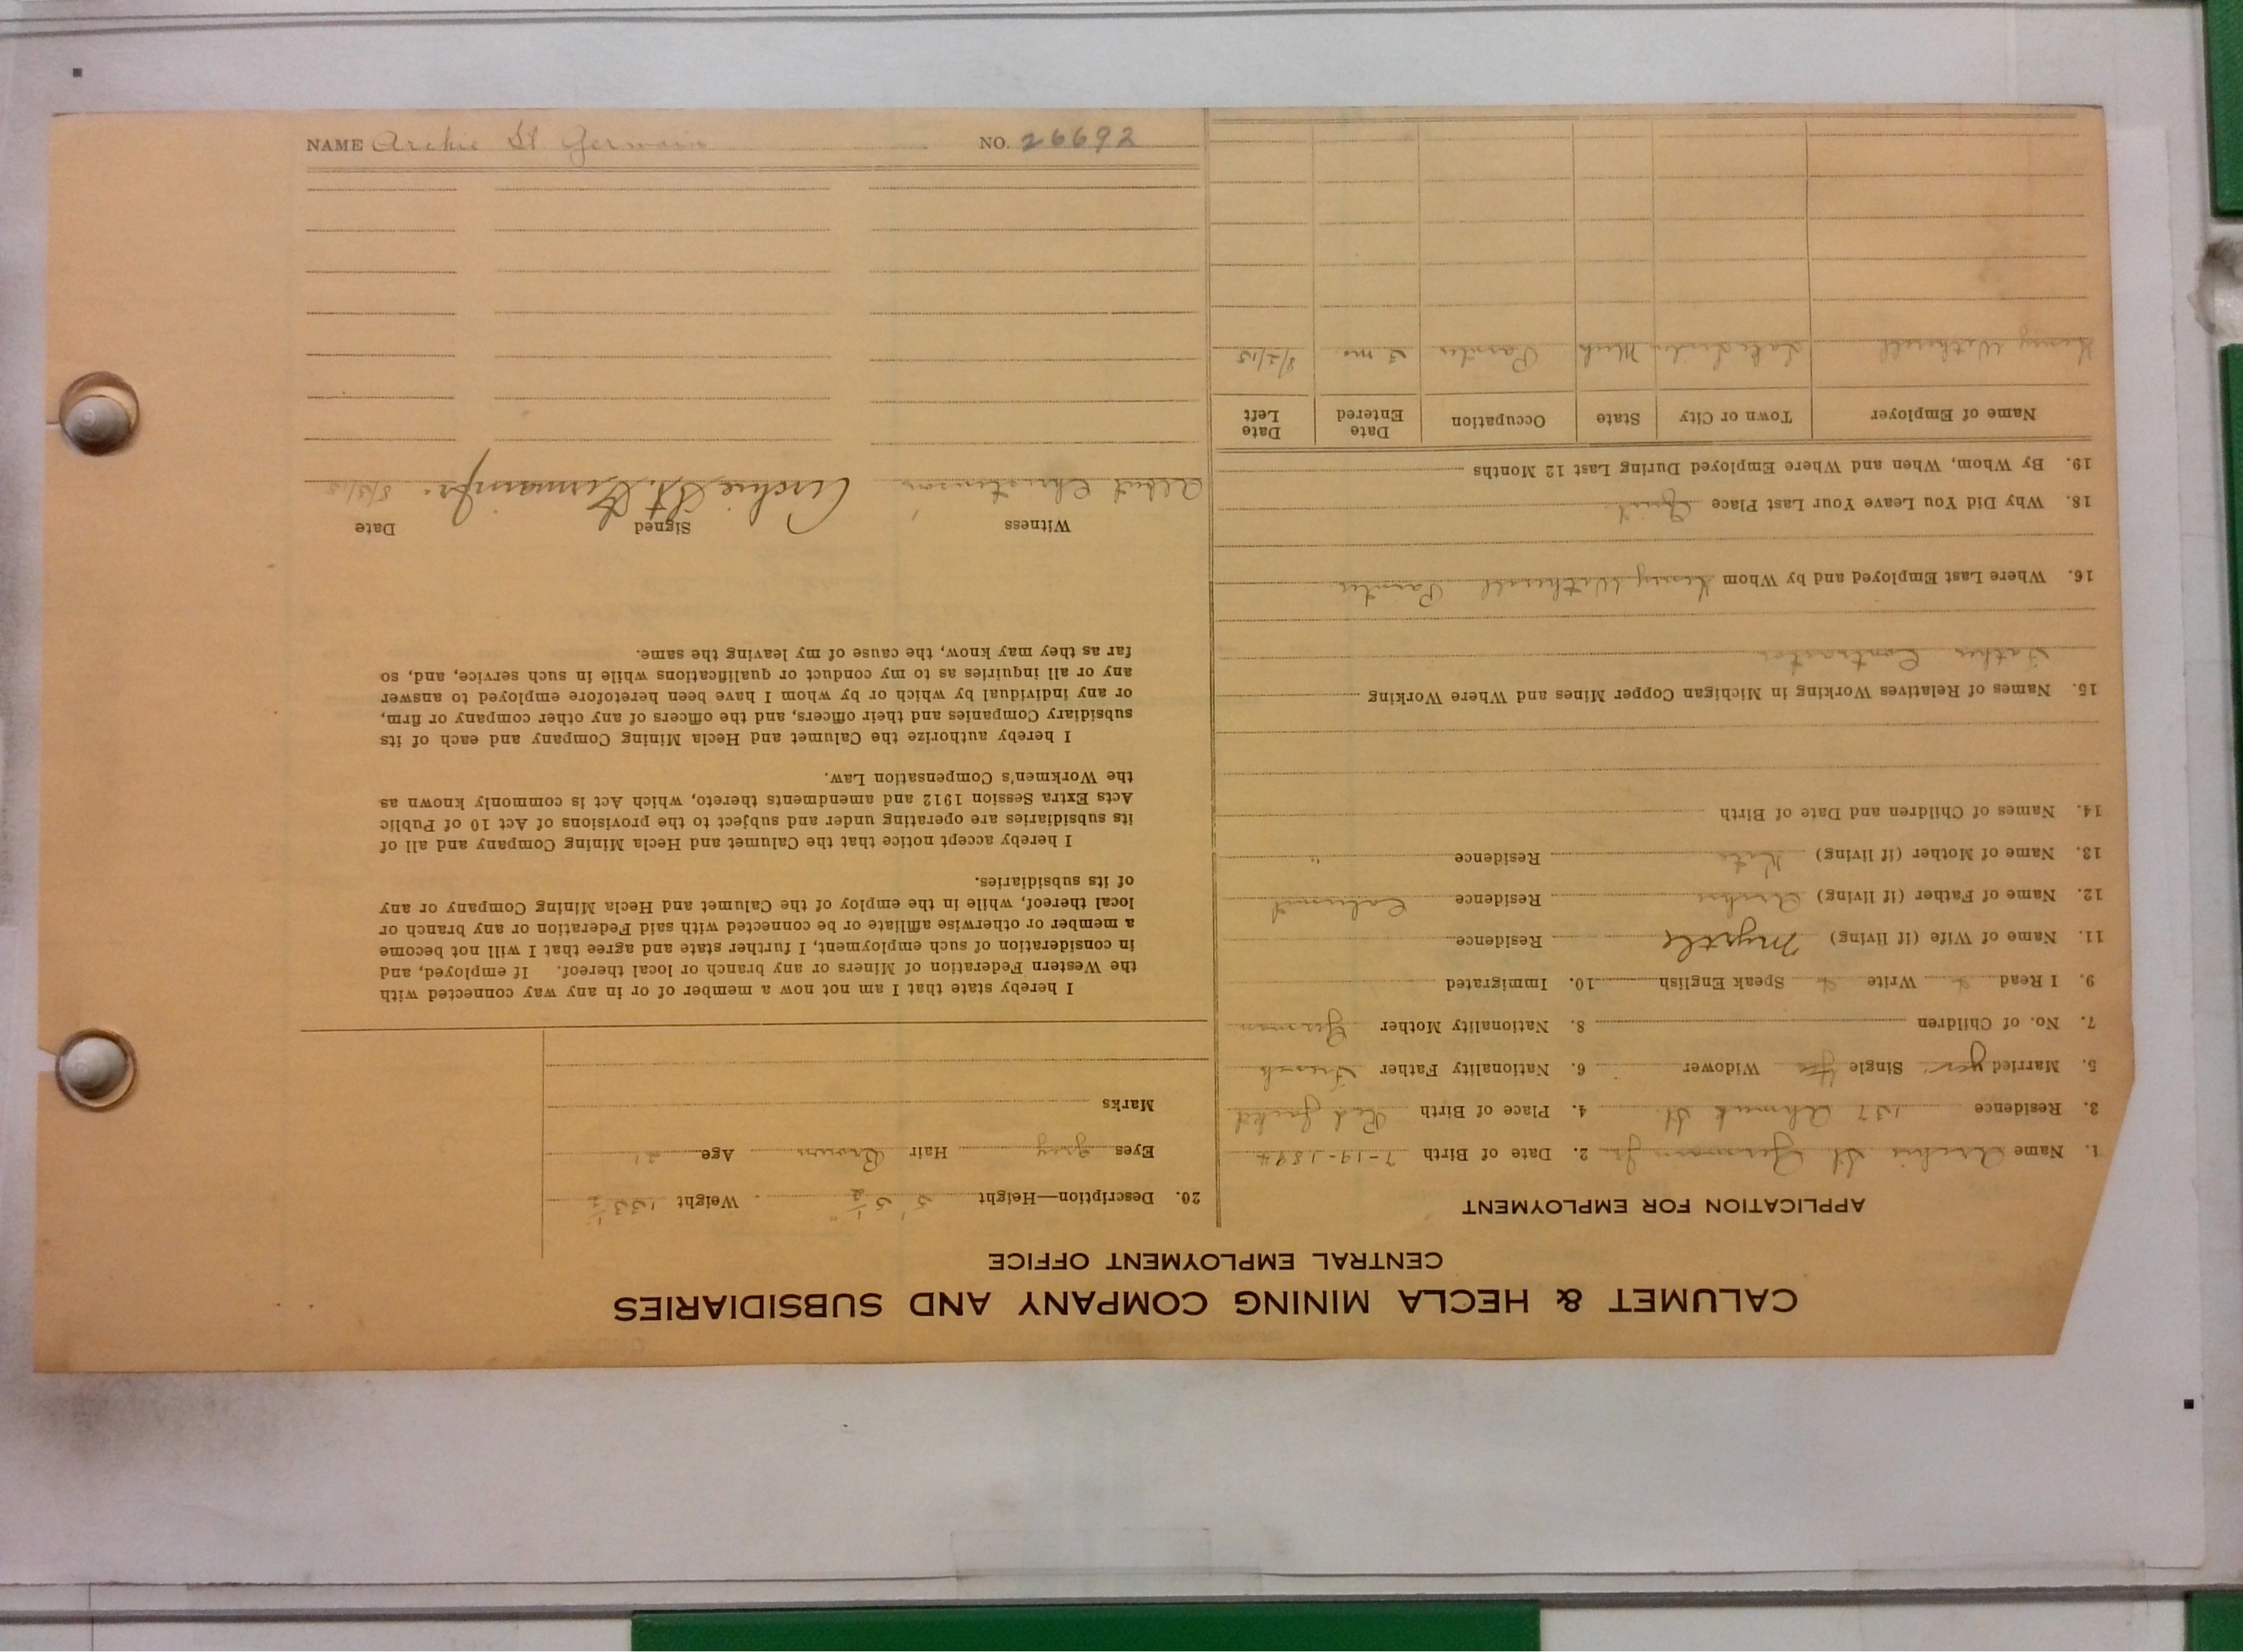 NAME Archie St Germain NO. 26692
CALUMET & HECLA MINING COMPANY AND SUBSIDIARIES
CENTRAL EMPLOYMENT OFFICE
APPLICATION FOR EMPLOYMENT
1. Name Archie St Germain Jr 2. Date of Birth 7-19-1894
3. Residence 137 Ahmeek St. 4. Place of Birth Red Jacket
5. Married yes. Single Widower 6. Nationality Father French
7. No. of Children 8. Nationality Mother German
9. I Read Write Speak English 10. Immigrated
11. Name of Wife (if living) Myrtle Residence
12. Name of Father (if living) Archie Residence Calumet
13. Name of Mother (if living) Kate Residence "
14. Names of Children and Date of Birth
15. Names of Relatives Working in Michigan Copper Mines and Where Working
Father Contractor
16. Where Last Employed and by Whom Henry Witherell Painter
18. Why Did You Leave Your Last Place Quit
19. By Whom, When and Where Employed During Last 12 Months
Name of Employer Town or City State Occupation Date Entered Date Left
Henry Witherell Lake Linden Mich Painter 2 mo. 8/2/15
20. Description—Height 5' 5 1/2" Weight 133 1/2
Eyes grey Hair Brown Age 21
Marks
I hereby state that I am not now a member of or in any way connected with
the Western Federation of Miners or any branch or local thereof. If employed, and
in consideration of such employment, I further state and agree that I will not become
a member or otherwise affiliate or be connected with said Federation or any branch or
local thereof, while in the employ of the Calumet and Hecla Mining Company or any
of its subsidiaries.
I hereby accept notice that the Calumet and Hecla Mining Company and all of
its subsidiaries are operating under and subject to the provisions of Act 10 of Public
Acts Extra Session 1912 and amendments thereto, which Act is commonly known as
the Workmen's Compensation Law.
I hereby authorize the Calumet and Hecla Mining Company and each of its
subsidiary Companies and their officers, and the officers of any other company or firm,
or any individual by which or by whom I have been heretofore employed to answer
any or all inquiries as to my conduct or qualifications while in such service, and, so
far as they may know, the cause of my leaving the same.
Witness Signed Date
Albert Christenson Archie St. Germain Jr. 8/3/15